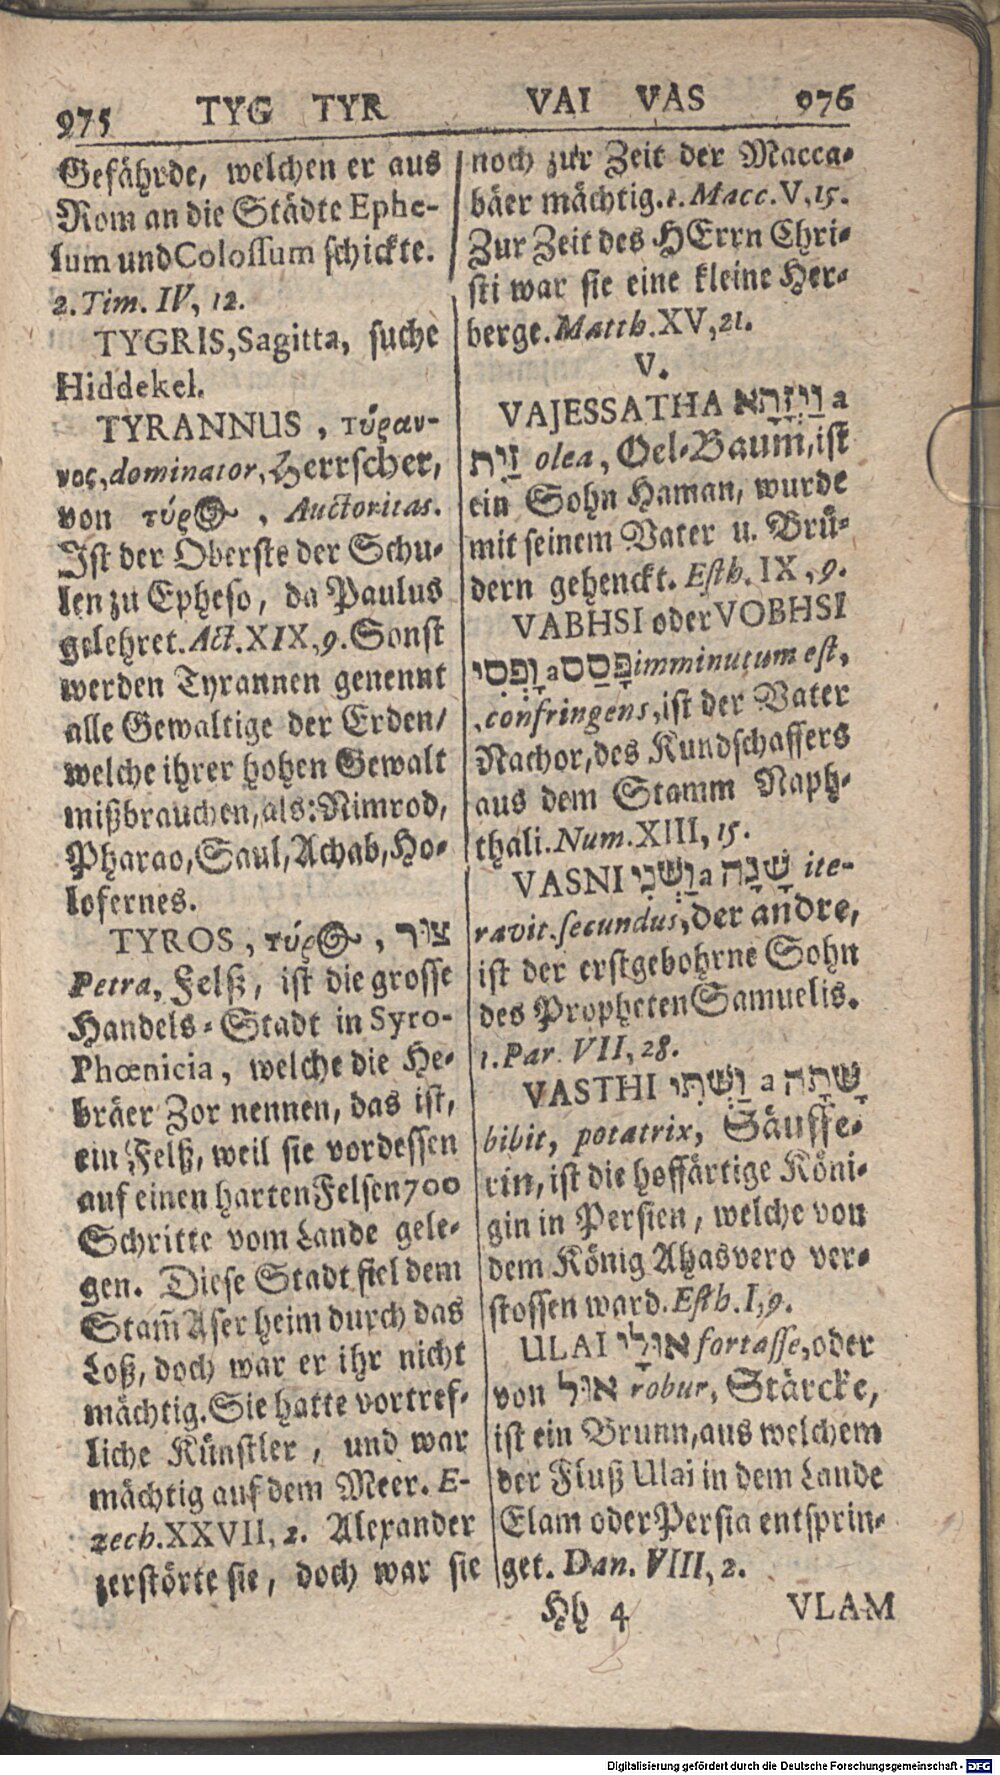 975 TYG TYR
Gefährde, welchen er aus
Rom an die Städte Ephe-
sum und Colossum schickte.
2. Tim. IV, 12.
TYGRIS, Sagitta, suche
Hiddekel.
TYRANNUS, τύραν-
νος, dominator, Herrscher,
von τύρος, Auctoritas.
Ist der Oberste der Schu-
len zu Epheso, da Paulus
gelehret. Act. XIX, 9. Sonst
werden Tyrannen genennt
alle Gewaltige der Erden/
welche ihrer hohen Gewalt
mißbrauchen, als: Nimrod,
Pharao, Saul, Achab, Ho-
lofernes.
TYROS, τύρος, צור
Petra, Felß, ist die grosse
Handels-Stadt in Syro-
Phœnicia, welche die He-
bräer Zor nennen, das ist,
ein Felß, weil sie vordessen
auf einen harten Felsen 700
Schritte vom Lande gele-
gen. Diese Stadt fiel dem
Stam̃ Aser heim durch das
Loß, doch war er ihr nicht
mächtig. Sie hatte vortref-
liche Künstler, und war
mächtig auf dem Meer. E-
zech. XXVII, 2. Alexander
zerstörte sie, doch war sie
VAI VAS 976
noch zur Zeit der Macca-
bäer mächtig. 1. Macc. V, 15.
Zur Zeit des HErrn Chri-
sti war sie eine kleine Her-
berge. Matth. XV, 21.
V.
VAJESSATHA וַיְזָתָא a
זַיִת olea, Oel-Baum, ist
ein Sohn Haman, wurde
mit seinem Vater u. Brü-
dern gehenckt. Esth. IX, 9.
VABHSI oder VOBHSI
וָפְסִי a פָּסַס imminutum est,
confringens, ist der Vater
Nachor, des Kundschaffers
aus dem Stamm Naph-
thali. Num. XIII, 15.
VASNI וַשְׁנִי a שָׁנָה ite-
ravit. secundus, der andre,
ist der erstgebohrne Sohn
des Propheten Samuelis.
1. Par. VII, 28.
VASTHI וַשְׁתִּי a שָׁתָה
bibit, potatrix, Säuffe-
rin, ist die hoffärtige Köni-
gin in Persien, welche von
dem König Ahasvero ver-
stossen ward. Esth. I, 9.
ULAI אוּלָי fortasse, oder
von אול robur, Stärcke,
ist ein Brunn, aus welchem
der Fluß Ulai in dem Lande
Elam oder Persia entsprin-
get. Dan. VIII, 2.
Hh 4 VLAM
Digitalisierung gefördert durch die Deutsche Forschungsgemeinschaft - DFG